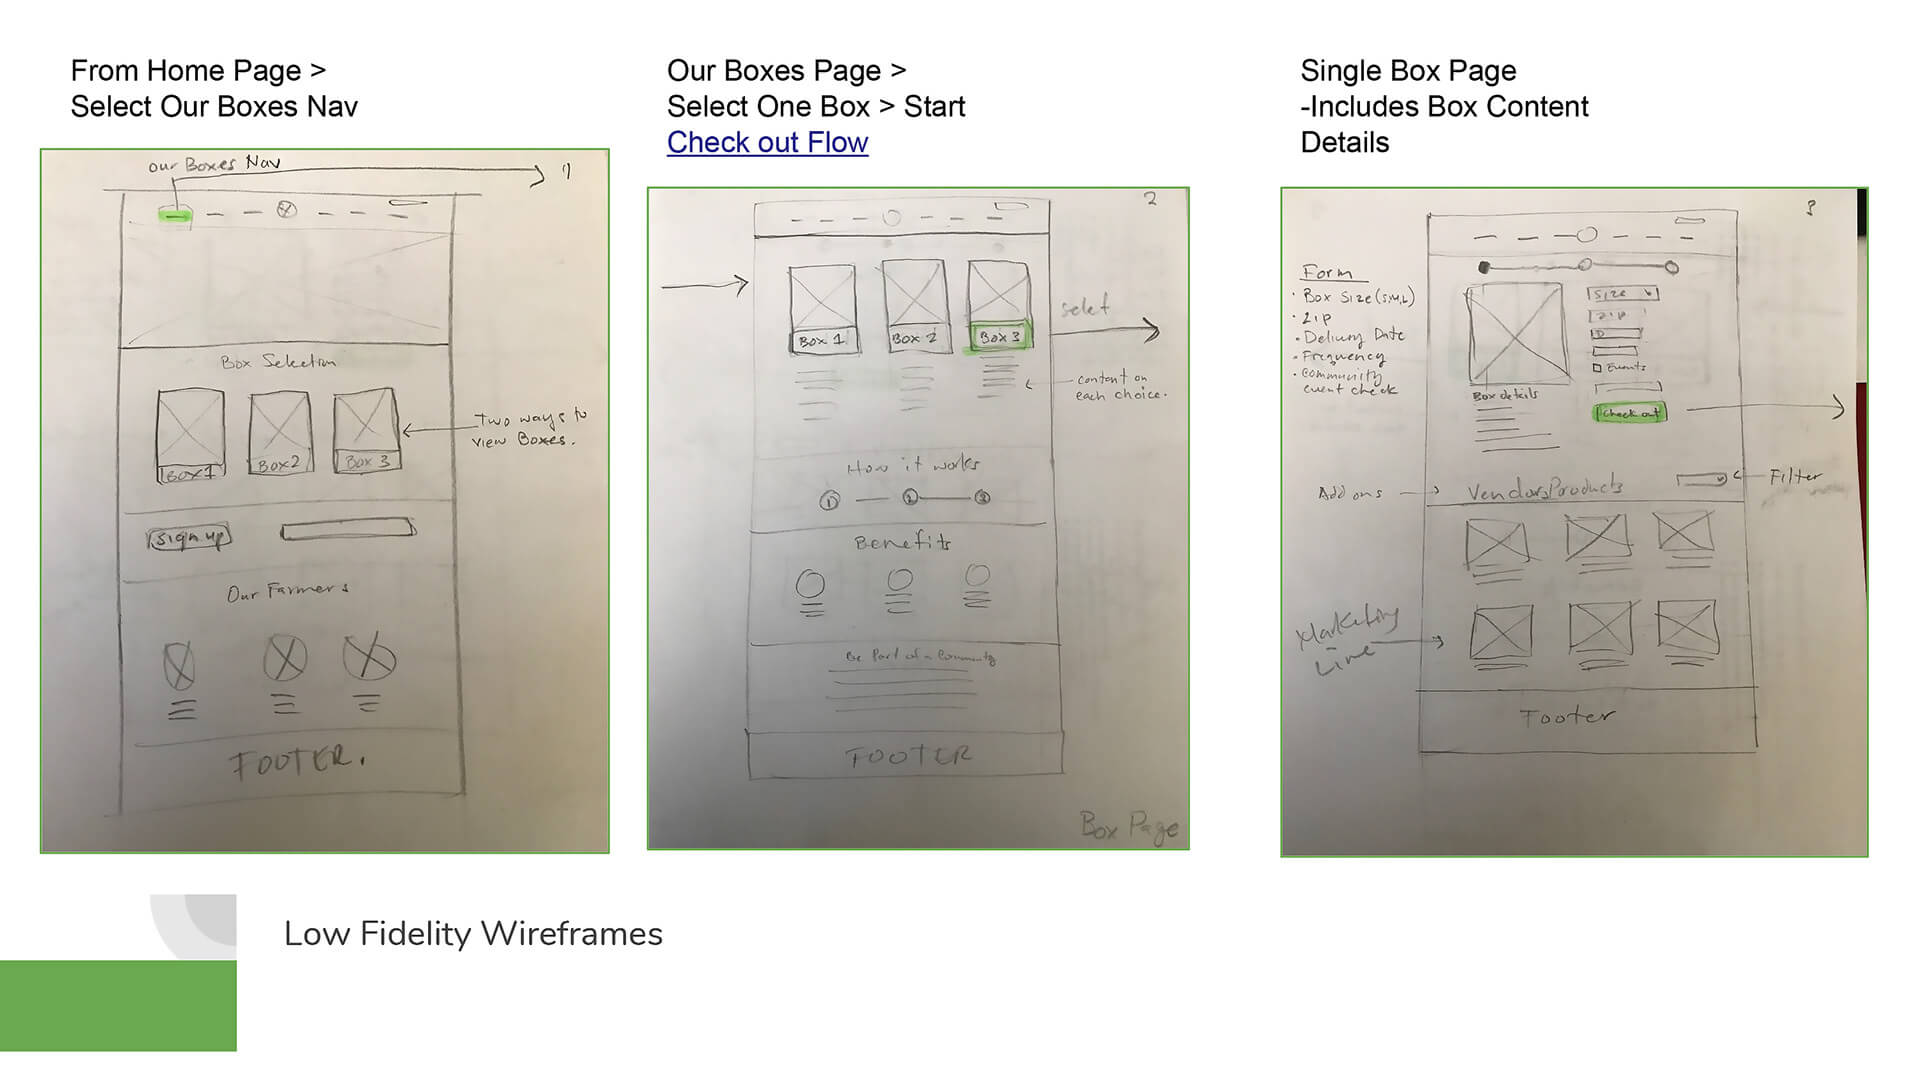 From Home Page >
Select Our Boxes Nav
our Boxes Nav
1)
Box Selection
Box 1
Box 2
Box 3
Two ways to
view Boxes.
sign up
Our Farmers
FOOTER.
Our Boxes Page >
Select One Box > Start
Check out Flow
2
Box 1
Box 2
Box 3
select
content on
each choice.
How it works
1
2
3
Benefits
Be Part of a Community
FOOTER
Box Page
Single Box Page
-Includes Box Content
Details
3
Form
· Box Size (S,M,L)
· Zip
· Delivery Date
· Frequency
· Community
event check
Size
Zip
D
Events
Check out
Box details
Add ons
Vendors Products
Filter
Marketing
Line
Footer
Low Fidelity Wireframes